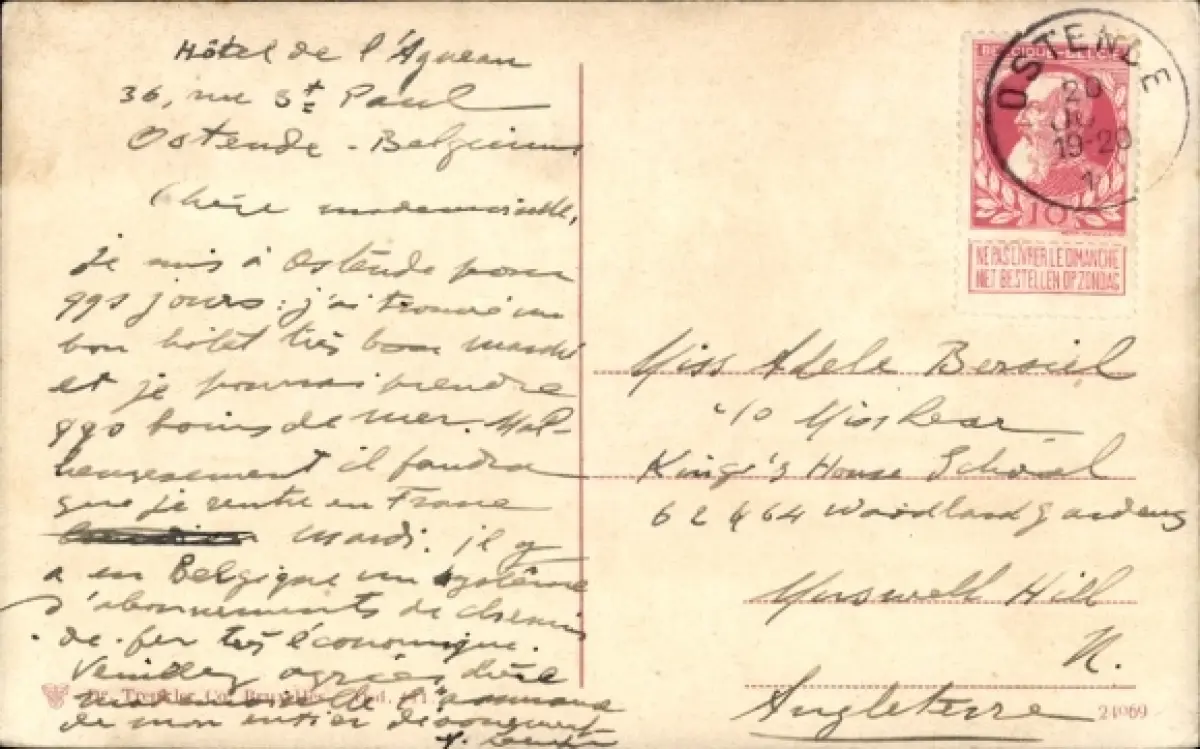 Hôtel de l'Agneau
36, rue St Paul
Ostende - Belgium
Chère mademoiselle,
Je suis à Ostende pour
qqs jours : j'ai trouvé un
bon hôtel très bon marché
et je pourrai prendre
qqs bains de mer. Mal-
heureusement il faudra
que je rentre en France
mardi. Il y
a en Belgique un système
d'abonnements de chemin
de fer très économique.
Veuillez agréer chère
mademoiselle l'
de mon entier dévouement
Dr. Trenkler Co. Bruxelles
BELGIQUE
OSTENDE
20
19-20
1
10
NE PAS LIVRER LE DIMANCHE
NIET BESTELLEN OP ZONDAG
Miss Adele
c/o Miss Lear
King's House School
62 & 64 Woodland gardens
Muswell Hill
N.
Angleterre
24069